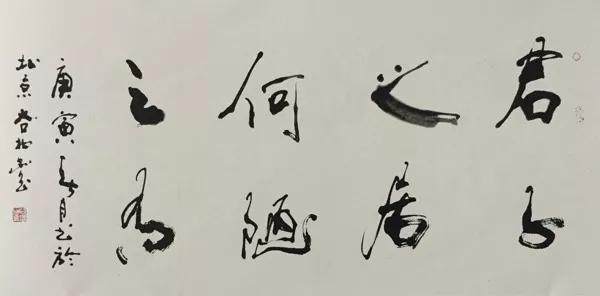 君子
之居
何陋
之有
庚寅春月书於
北京